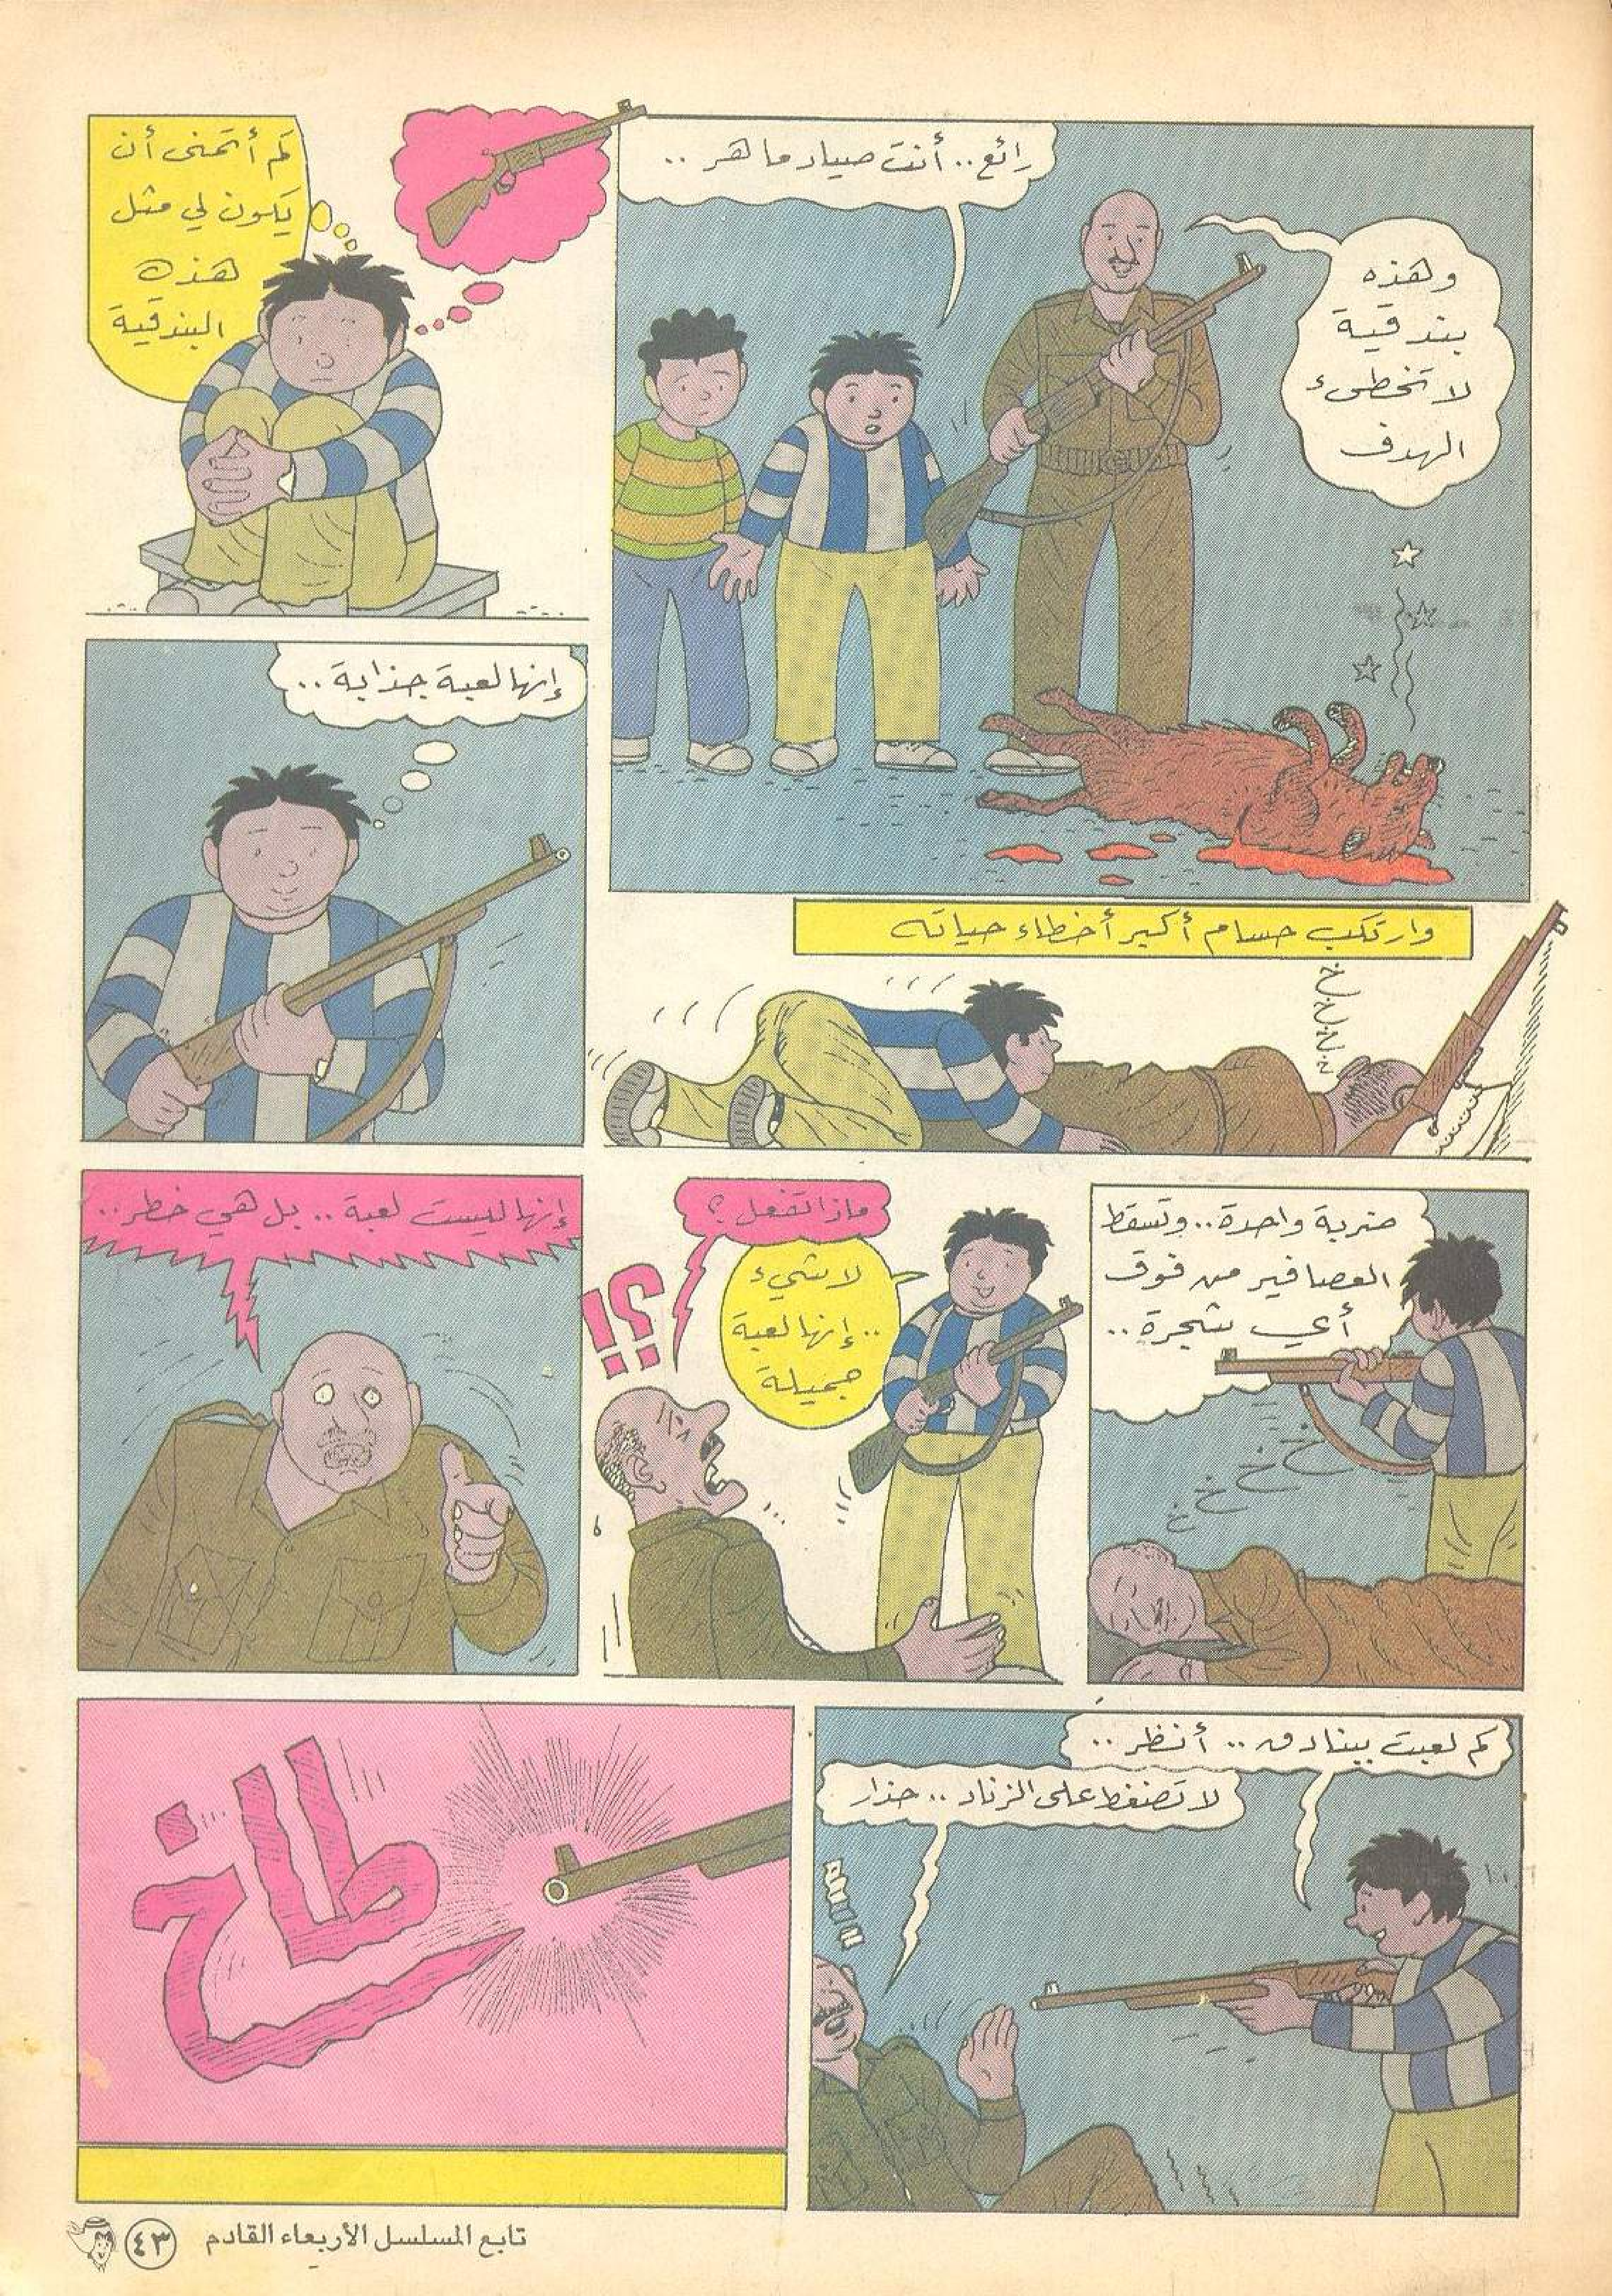 رائع.. أنت صياد ماهر ..
وهذه
بندقية
لا تخطىء
الهدف
كم أتمنى أن
يكون لي مثل
هذه
البندقية
وارتكب حسام أكبر أخطاء حياته
خ خ خ خ خ
إنها لعبة جذابة ..
ضربة واحدة.. وتسقط
العصافير من فوق
أي شجرة ..
خ خ خ خ
ماذا تفعل ؟
؟!
لا شيء
.. إنها لعبة
جميلة
إنها ليست لعبة .. بل هي خطر ..
كم لعبت ببنادق .. أنظر ..
لا تضغط على الزناد .. حذار
!!!!
طاخ
تابع المسلسل الأربعاء القادم
٤٣